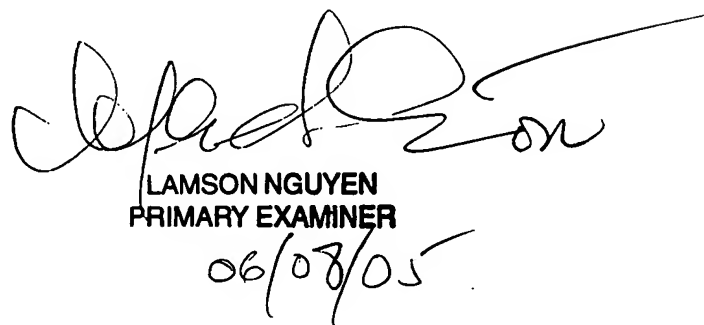 LAMSON NGUYEN
PRIMARY EXAMINER
06/08/05